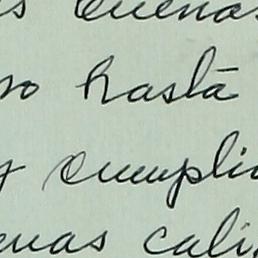 s buenas
so hasta
y cumplio
enas cali